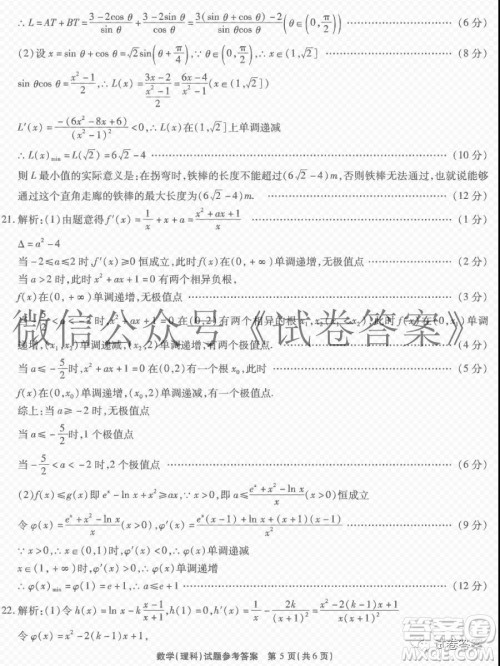 ∴ L=AT+BT=(3-2cos θ)/sin θ+(3-2sin θ)/cos θ=(3(sin θ+cos θ)-2)/(sin θcos θ)(θ∈(0,π/2)) (6 分)
(2)设 sin θ+cos θ=√2sin(θ+π/4),∵θ∈(0,π/2),∴x∈(1,√2] (8 分)
sin θcos θ=(x²-1)/2,∴L(x)=(3x-2)/((x²-1)/2)=(6x-4)/(x²-1)(x∈(1,√2])
L′(x)=-(6x²-8x+6)/(x²-1)²<0,∴L(x)在(1,√2]上单调递减
∴L(x)min=L(√2)=6√2-4 (10 分)
则 L 最小值的实际意义是:在拐弯时,铁棒的长度不能超过(6√2-4)m,否则,铁棒无法通过.也就是说,能够
通过这个直角走廊的铁棒的最大长度为(6√2-4)m (12 分)
21. 解析:(1)由题意得 f′(x)=1/x+x+a=(x²+ax+1)/x (1 分)
Δ=a²-4
当-2≤a≤2时,f′(x)≥0 恒成立,f(x)在(0,+∞)单调递增,无极值点 (2 分)
当 a>2 时,此时 x²+ax+1=0 有两个负根,
f(x)在(0,+∞)单调递增,无极值点 (3 分)
微信公众号《试卷答案》
递增,(x₁,2)单调递减,有一个极值点 (4 分)
当 a≤-5/2 时,
f(x)在(0,x₀)单调递增,(x₀,2)单调递减,有一个极值点
综上:当 a≥-2 时,无极值点
当 a≤-5/2 时,有 1 个极值点
当-5/2<a<-2 时,有 2 个极值点 (6 分)
(2)f(x)≤g(x)即 eˣ-ln x+x²≥ax 即(eˣ+x²-ln x)/x≥a(x>0)恒成立
令 φ(x)=(eˣ+x²-ln x)/x(x>0),∴φ′(x)=(eˣ(x-1)+ln x+(x+1)(x-1))/x² (9 分)
∵x>0,∴x∈(0,1)时,φ′(x)<0,∴φ(x)单调递减
x∈(1,+∞)时,φ′(x)>0,∴φ(x)单调递增
∴φ(x)min=φ(1)=e+1,∴a≤e+1 (12 分)
22. 解析:(1)令 h(x)=ln x-k(x-1)/(x+1),
数学(理科)试题参考答案 第 5 页(共 6 页)